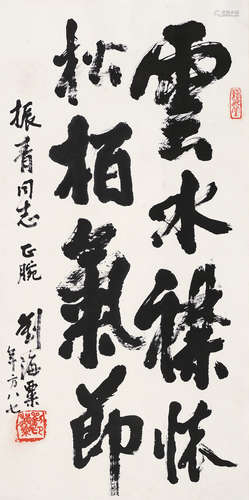 雲水襟懐
松柏氣節
振青同志正腕
劉海粟
年方八七